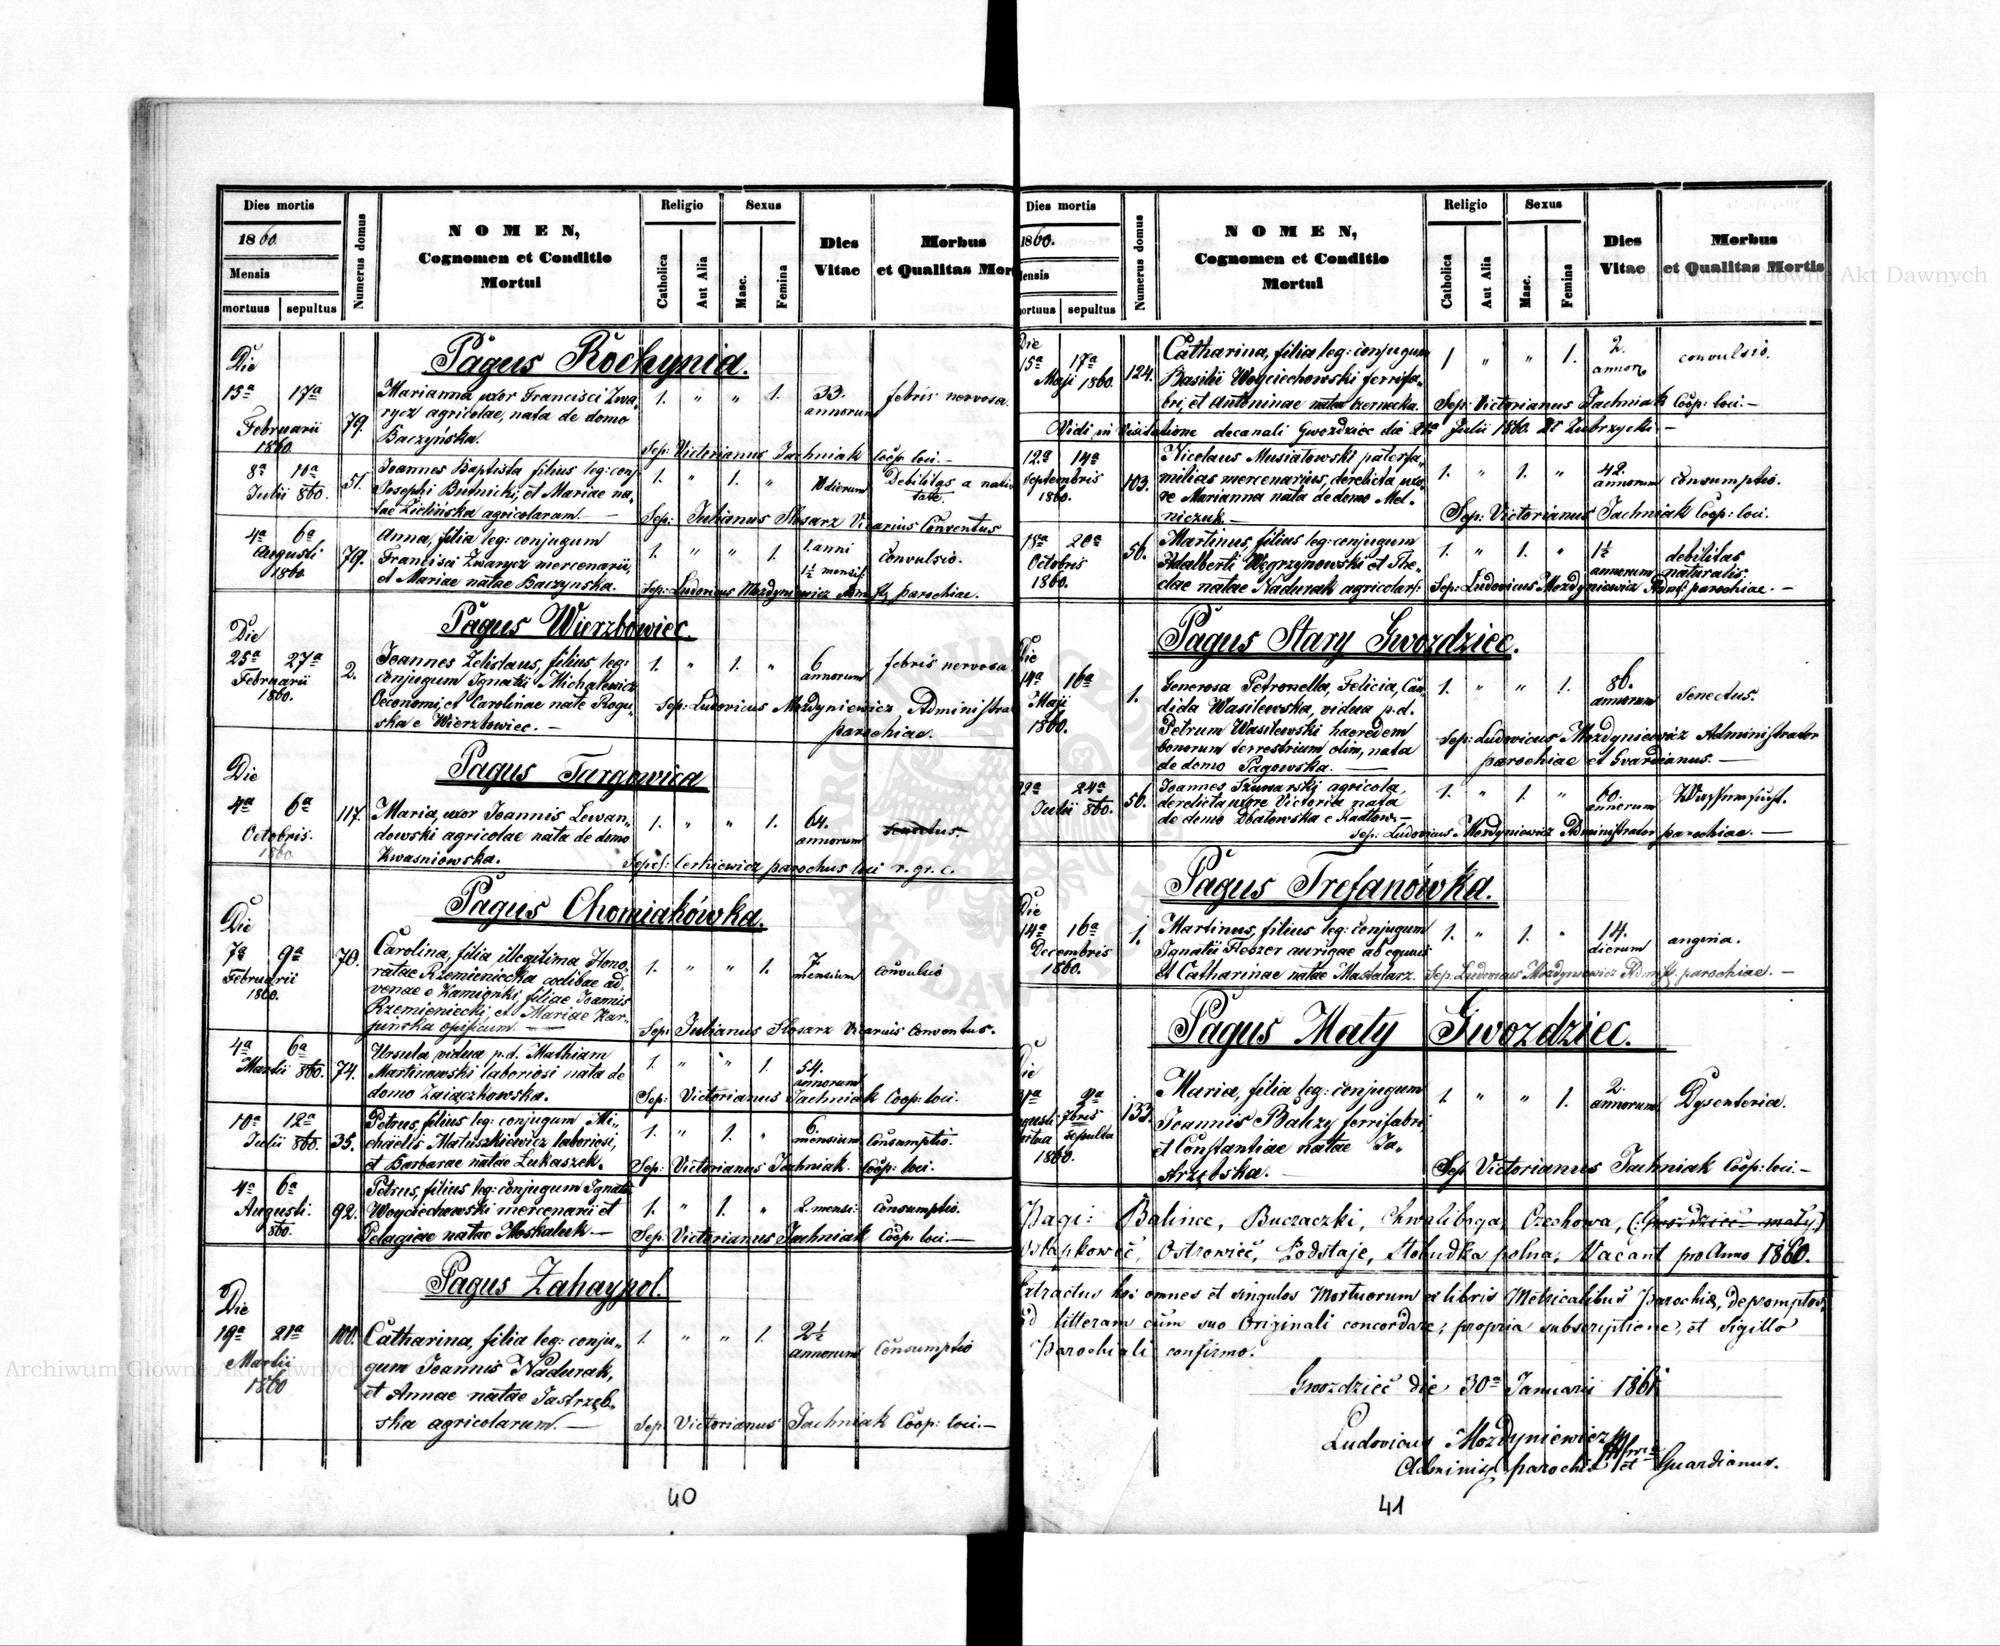 Dies mortis
1860.
Mensis
mortuus sepultus
Numerus domus
NOMEN,
Cognomen et Conditio
Mortui
Religio
Catholica
Aut Alia
Sexus
Masc.
Femina
Dies
Vitae
Morbus
et Qualitas Mort
Die
Pagus Rochynia.
15a 17a
Februarii
1860.
79.
Marianna uxor Francisci Zwa-
rycz agricolae, nata de domo
Baczyńska.
1. " " 1. 33.
annorum
febris nervosa.
Sep: Victorianus Jachniak Coop: loci.—
8a 10a
Julii 860.
51.
Joannes Baptista filius leg: conj:
Josephi Butnicki, et Mariae na-
tae Zielińska agricolarum.—
1. " 1. " 10 dierum
Debilitas a nativi
tate.
Sep: Julianus Slosarz Vicarius Conventus
4a 6a
Augusti
1860.
79.
Anna, filia leg: conjugum
Francisci Zwarycz mercenarii,
et Mariae natae Baczynska.
1. " " 1. 1. anni
1½ mensis:
Convulsio.
Sep: Ludovicus Mozdyniewicz Admst. parochiae.
Pagus Wierzbowiec.
Die
25a 27a
Februarii
1860.
2.
Joannes Zelislaus, filius leg:
conjugum Ignatii Michalewicz
Oeconomi, et Carolinae nate Rogu-
ska e Wierzbowiec.—
1. " 1. " 6
annorum
febris nervosa
Sep: Ludovicus Mozdyniewicz Administra
parochiae.
Pagus Targowica
Die
4a 6a
Octobris.
1860
117.
Maria, uxor Joannis Lewan-
dowski agricolae nata de domo
Kwasniowska.
1. " " 1. 64.
annorum
Senectus.
Sepel: Cerkiewicz parochus loci r. gr. c.
Pagus Chomiakówka.
Die
7a 9a
Februarii
1860.
70.
Carolina, filia illegitima Hono-
ratae Rzemieniecka coelibae ad-
venae e Kamionki, filiae Joannis
Rzemieniecki, et Mariae Kar-
pinska opificum.—
1. " " 1. 7
mensium
Convulsio
Sep: Julianus Slosarz Vicarius Conventus.
4a 6a
Martii 860.
74.
Ursula vidua p.d. Mathiam
Martinowski laboriosi nata de
domo Zaiączkowska.
1. " " 1. 54.
annorum
Sep: Victorianus Jachniak Coop: loci.
10a 12a
Julii 860.
35.
Petrus, filius leg: conjugum Mi-
chaelis Matuszkiewicz laboriosi,
et Barbarae natae Lukaszek.
1. " 1. " 6.
mensium
Consumptio.
Sep: Victorianus Jachniak. Coop: loci.
4a 6a
Augusti.
860.
92.
Petrus, filius leg: conjugum Ignatii
Woyciechowski mercenarii et
Pelagiae natae Moskaluk—
1. " 1. " 2. mensi: Consumptio.
Sep: Victorianus Jachniak Coop: loci.—
Pagus Zahaypol.
Die
19a 21a
Martii
1860
100.
Catharina, filia leg: conju-
gum Joannis Nadurak,
et Annae natae Jastrzęb-
ska agricolarum.—
1. " " 1. 2½
annorum
Consumptio
Sep: Victorianus Jachniak Coop: loci.—
40
Dies mortis
1860.
Mensis
mortuus sepultus
Numerus domus
NOMEN,
Cognomen et Conditio
Mortui
Religio
Catholica
Aut Alia
Sexus
Masc.
Femina
Dies
Vitae
Morbus
et Qualitas Mortis
Die
15a 17a
Maji 1860.
124.
Catharina, filia leg: conjugum
Basilii Woyciechowski ferrifa-
bri, et Antoninae nata Czernecka.
1 " " 1. 2.
annor.
convulsio.
Sep: Victorianus Jachniak Coop: loci.—
Vidi in Visitatione decanali Gwozdziec die 21a Julii 1860. Lubrzycki—
12a 14a
Septembris
1860.
103.
Nicolaus Musiatowski paterfa-
milias mercenarius, derelicta uxo-
re Marianna nata de domo Mel-
niczuk.—
1. " 1. " 42.
annorum
consumptio.
Sep: Victorianus Jachniak Coop: loci.
18a 20a
Octobris
1860.
56.
Martinus filius leg: conjugum
Adalberti Węgrzynowski et The-
clae natae Nadurak agricolar:
1. " 1. " 1½
annorum
debilitas
naturalis.
Sep: Ludovicus Mozdyniewicz Admst: parochiae.—
Pagus Stary Gwozdziec.
Die
14a 16a
Maji
1860.
1.
Generosa Petronella, Felicia, Can-
dida Wasilewska, vidua p.d.
Petrum Wasilewski haeredem
bonorum terrestrium olim, nata
de domo Pagowska.—
1. " " 1. 86.
annorum
Senectus.
Sep: Ludovicus Mozdyniewicz Administrator
parochiae et Gvardianus.—
22a 24a
Julii 860.
56.
Joannes Szumarski agricola,
derelicta uxore Victoria nata
de domo Dbatowska e Kadlow.—
1. " 1. " 60.
annorum
Sep: Ludovicus Mozdyniewicz Administrator parochiae.—
Pagus Trefanówka.
Die
14a 16a
Decembris
1860.
1.
Martinus, filius leg: conjugum
Ignatii Fleszer aurigae ad equus
et Catharinae natae Mastalarz.
1. " 1. " 14.
dierum
angina.
Sep: Ludovicus Mozdyniewicz Admst. parochiae.—
Pagus Maly Gwozdziec.
Die
31a 2a
Augusti 7bris
mortua sepulta
1860.
133.
Maria, filia leg: conjugum
Joannis Balizy ferrifabri,
et Constantiae natae Ja-
strzębska.—
1. " " 1. 2.
annorum
Dysenteria.
Sep Victorianus Jachniak Coop: loci.—
Pagi: Balince, Buczaczki, Chwaliboga, Czechowa, (:Gwozdziec maly:)
Ostapkowce, Ostrowiec, Podstaje, Slobudka polna, Vacant pro Anno 1860.
Extractus hos omnes et singulos Mortuorum ex libris Metricalibus Parochiae, depromptos,
ad litteram cum suo Originali concordare, propria subscriptione, et sigillo
Parochiali confirmo.
Gwozdziec die 30a Januarii 1861
Ludovicus Mozdyniewicz
Adminis. parochiae et Guardianus.
41
Archiwum Główne Akt Dawnych
Archiwum Główne Akt Dawnych
ARCHIWUM GŁÓWNE AKT DAWNYCH